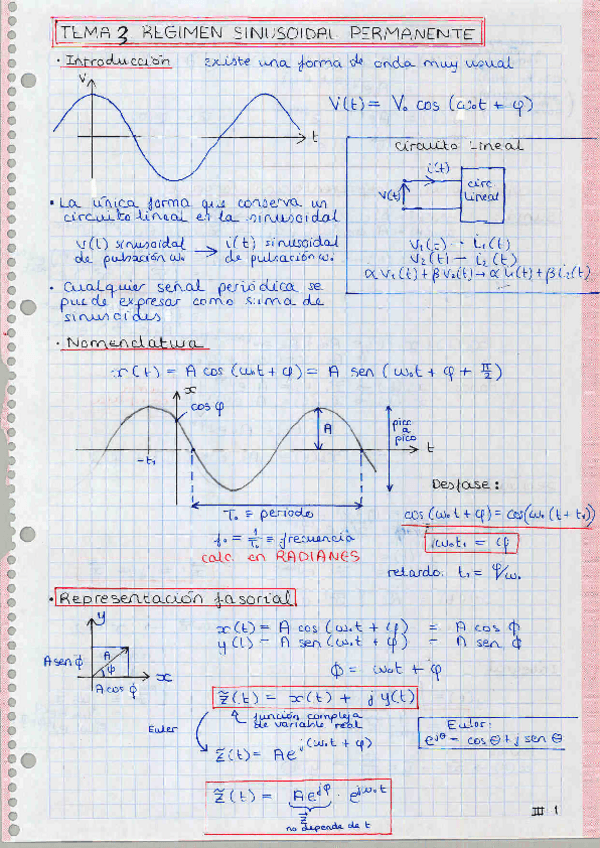 TEMA 3 REGIMEN SINUSOIDAL PERMANENTE
· Introducción existe una forma de onda muy usual
V
t
V(t) = V₀ cos (ω₀t + φ)
Circuito Lineal
i(t)
V(t)
circ
Lineal
V₁(t) → i₁(t)
V₂(t) → i₂(t)
αV₁(t) + βV₂(t) → αi₁(t) + βi₂(t)
· La única forma que conserva un
circuito lineal es la sinusoidal
V(t) sinusoidal → i(t) sinusoidal
de pulsación ω₀ de pulsación ω₀
· Cualquier señal periódica se
puede expresar como suma de
sinusoides
· Nomenclatura
x(t) = A cos (ω₀t + φ) = A sen (ω₀t + φ + π/2)
x
cos φ
A
pico
a
pico
-t₁
t
T₀ ≡ periodo
f₀ = 1/T₀ ≡ frecuencia
calc. en RADIANES
Desfase:
cos(ω₀t + φ) = cos(ω₀(t + t₁))
ω₀t₁ = φ
retardo: t₁ = φ/ω₀
· Representación fasorial
y
A sen ϕ
A
ϕ
x
A cos ϕ
x(t) = A cos (ω₀t + φ) = A cos ϕ
y(t) = A sen (ω₀t + φ) = A sen ϕ
ϕ = ω₀t + φ
z̃(t) = x(t) + j y(t)
función compleja
de variable real
Euler
z̃(t) = Ae^j(ω₀t + φ)
Euler:
e^jθ = cos θ + j sen θ
z̃(t) = Ae^jφ · e^jω₀t
z̃
no depende de t
III 1